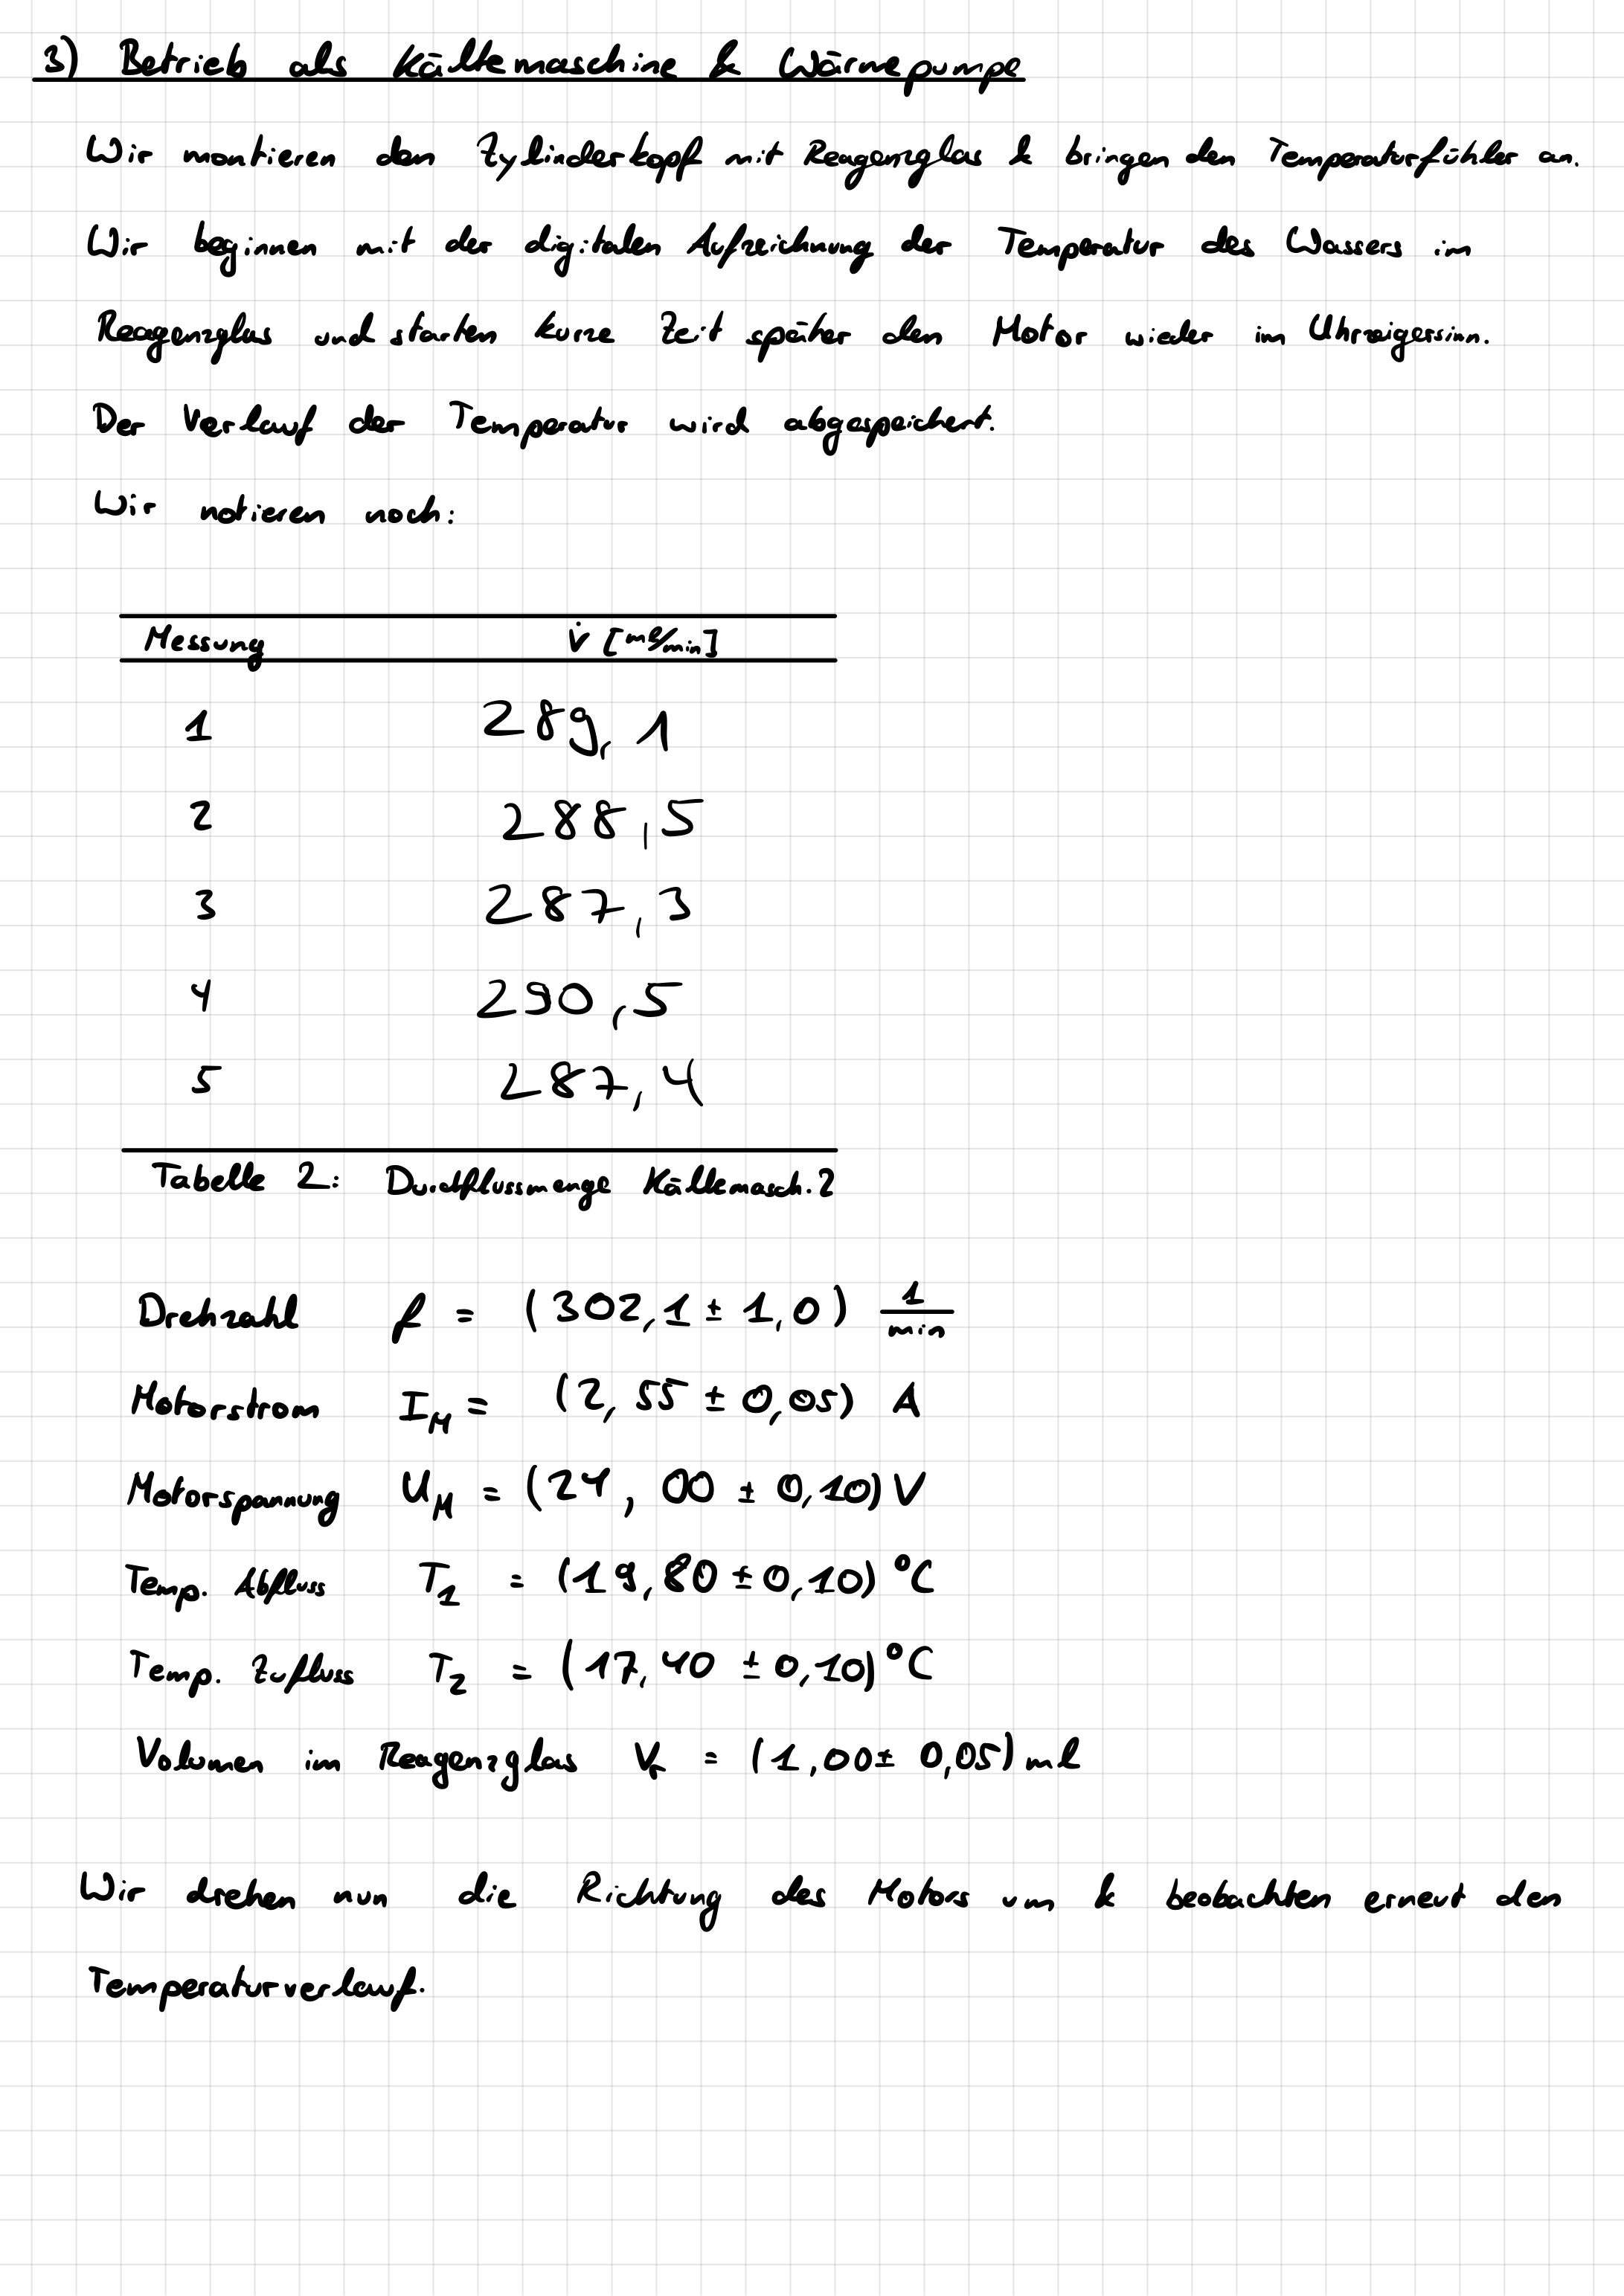 3) Betrieb als Kältemaschine & Wärmepumpe
Wir montieren den Zylinderkopf mit Reagenzglas & bringen den Temperaturfühler an.
Wir beginnen mit der digitalen Aufzeichnung der Temperatur des Wassers im
Reagenzglas und starten kurze Zeit später den Motor wieder im Uhrzeigersinn.
Der Verlauf der Temperatur wird abgespeichert.
Wir notieren noch:
Messung V̇ [ml/min]
1 289,1
2 288,5
3 287,3
4 290,5
5 287,4
Tabelle 2: Durchflussmenge Kältemasch. 2
Drehzahl f = (302,1 ± 1,0) 1/min
Motorstrom I_M = (2,55 ± 0,05) A
Motorspannung U_M = (24,00 ± 0,10) V
Temp. Abfluss T_1 = (19,80 ± 0,10) °C
Temp. Zufluss T_2 = (17,40 ± 0,10) °C
Volumen im Reagenzglas V_r = (1,00 ± 0,05) ml
Wir drehen nun die Richtung des Motors um & beobachten erneut den
Temperaturverlauf.